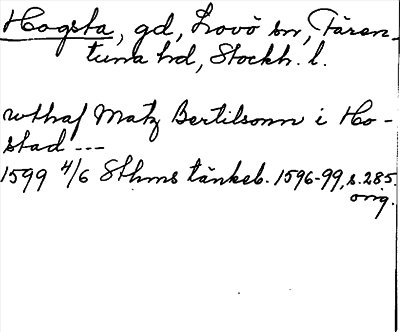 Hogsta, gd, Lovö sn, Fären-
tuna hd, Stockh. l.
wthaf Matz Bertilsonn i Ho-
stad ---
1599 4/6 Sthms tänkeb. 1596-99, s. 285.
orig.